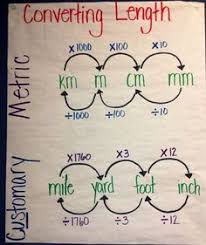 Converting Length
Metric
×1000 ×100 ×10
km m cm mm
÷1000 ÷100 ÷10
Customary
×1760 ×3 ×12
mile yard foot inch
÷1760 ÷3 ÷12